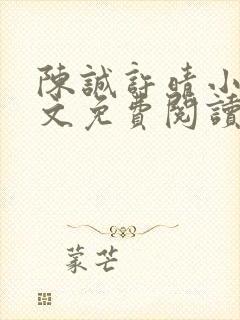 陳誠許晴小
文免費閱讀
蒙芒